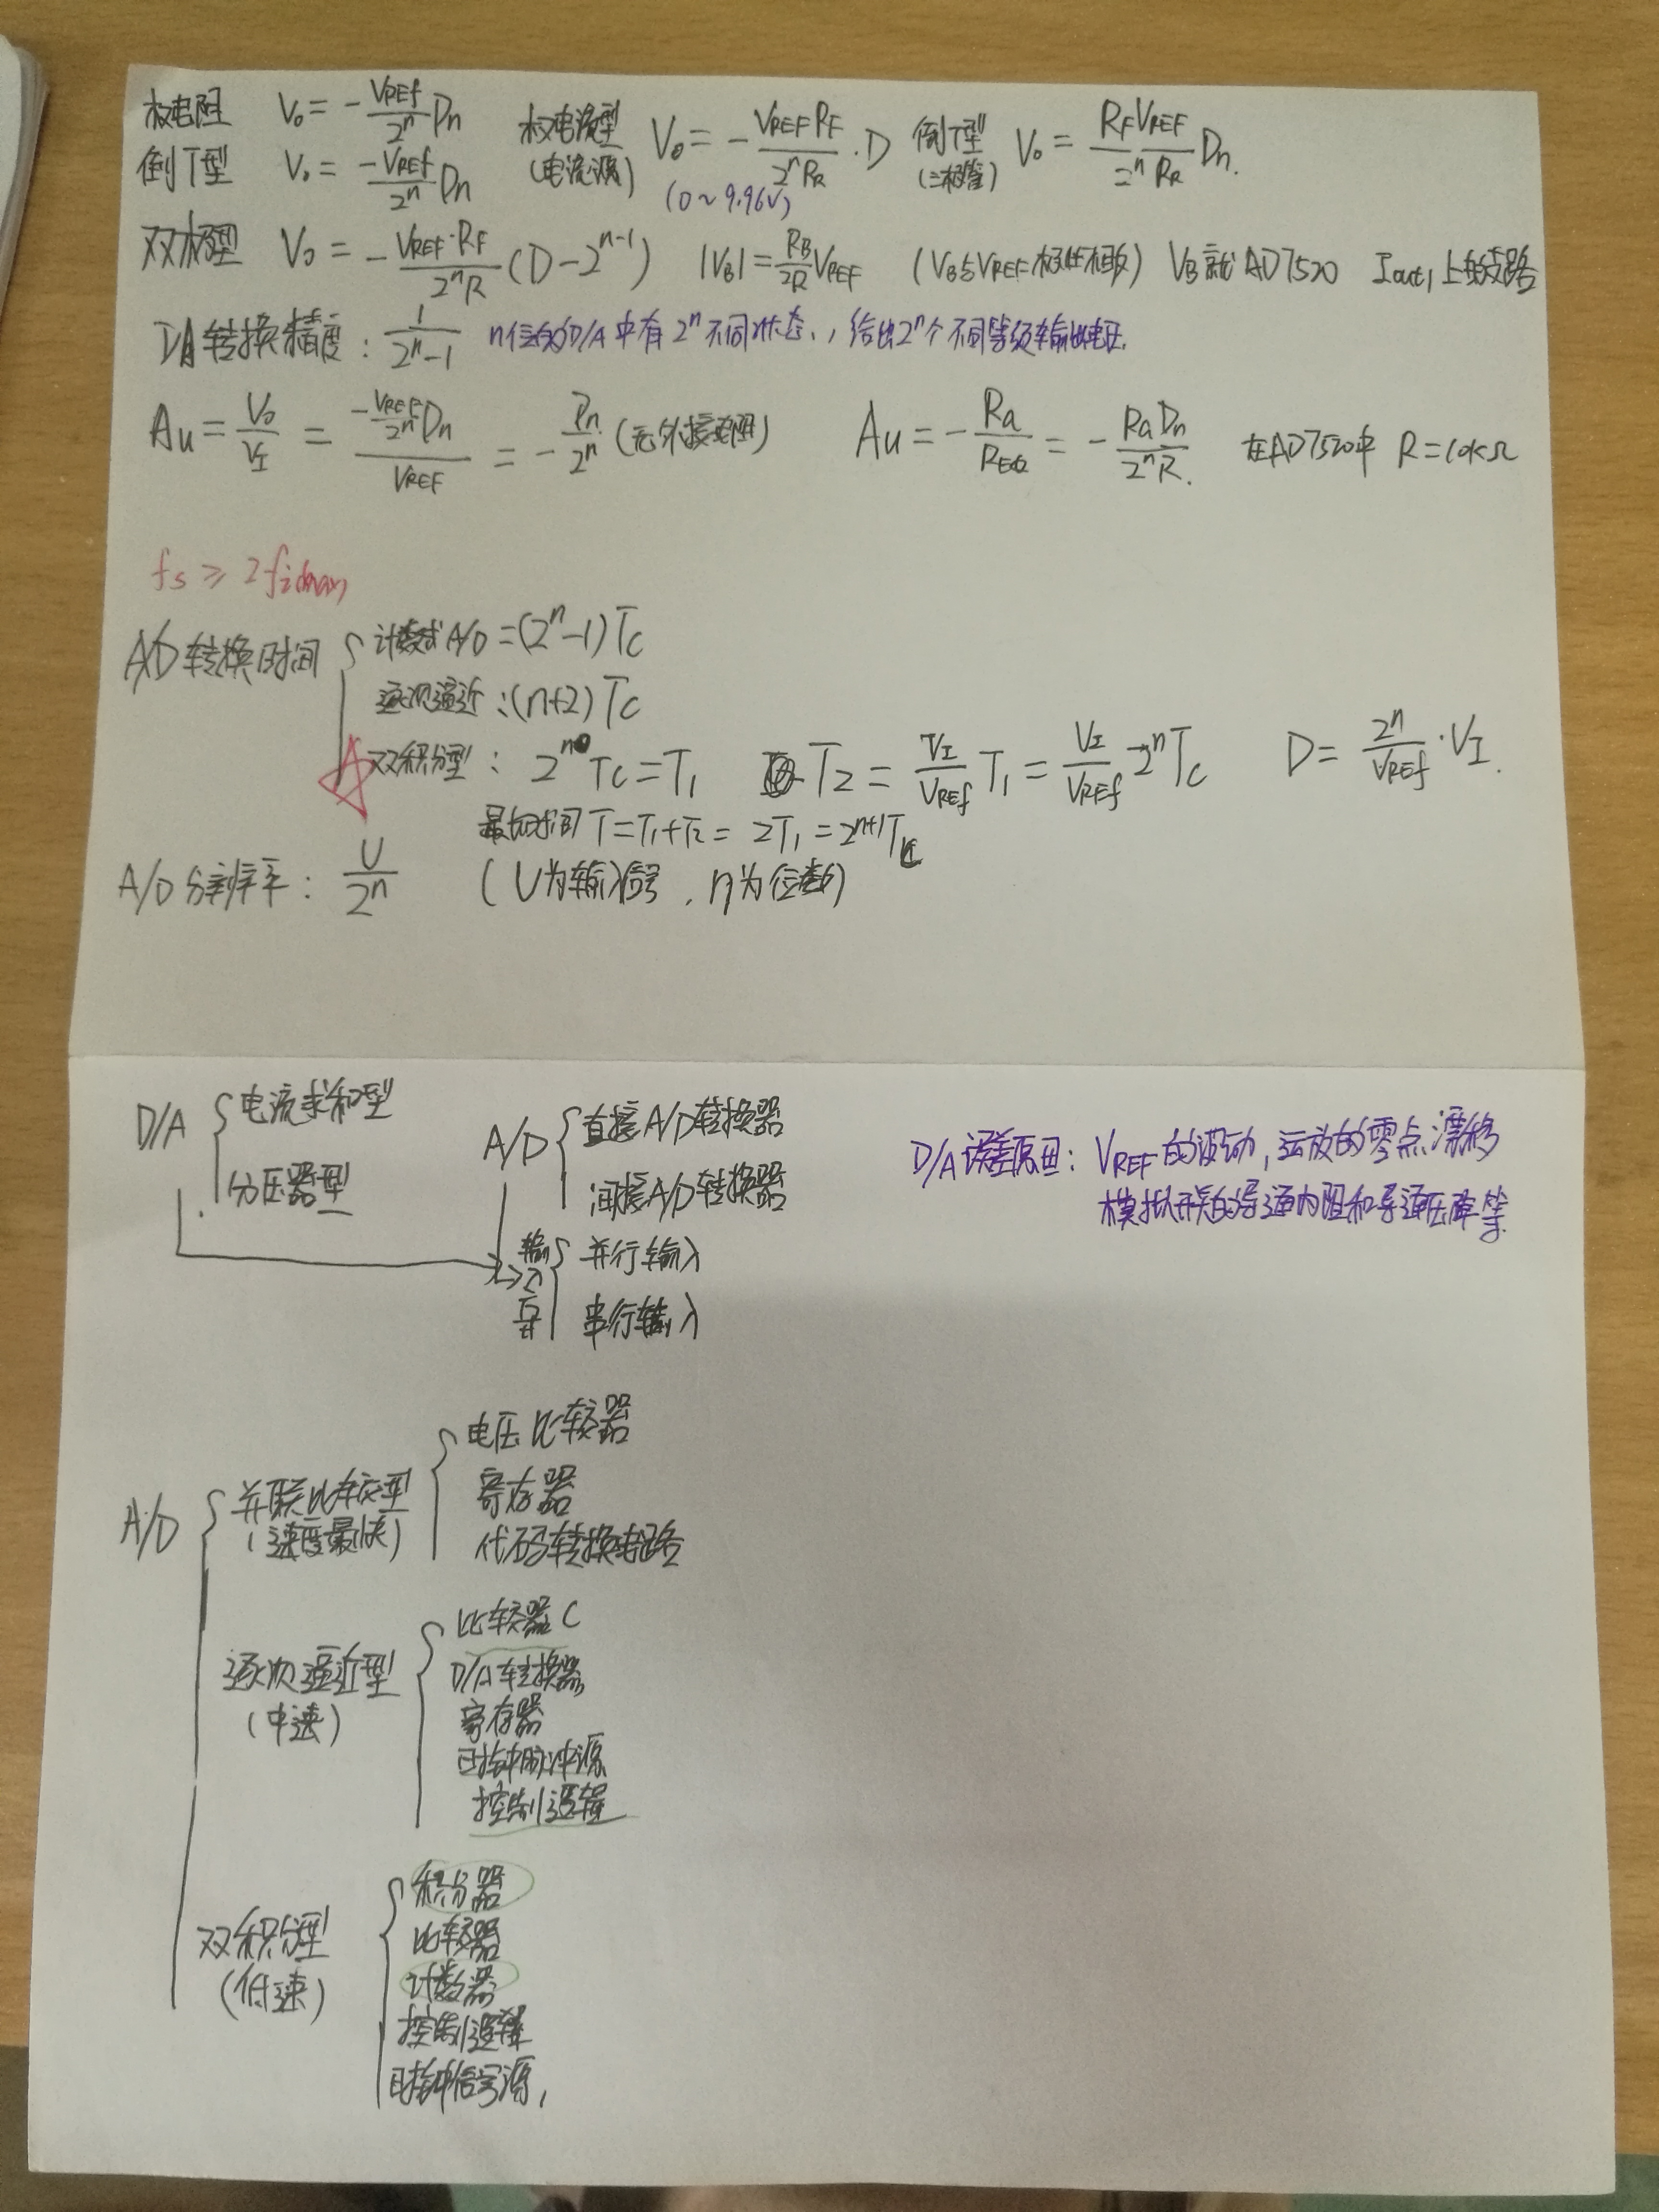 权电阻 V₀ = -VREf/2ⁿ Dn 权电流型 V₀ = -VREF RF/2ⁿRR · D 倒T型 V₀ = RF VREF/2ⁿ RR Dn.
倒T型 V₀ = -VREf/2ⁿ Dn (电流源) (0~9.96V) (三极管)
双极型 V₀ = -VREF·RF/2ⁿR (D-2ⁿ⁻¹) |VB| = RB/2R VREF (VB与VREF极性相反) VB就AD7520 Iout1上的支路
D/A转换精度: 1/2ⁿ-1 n位的D/A中有2ⁿ不同状态, 给出2ⁿ个不同等级输出电压.
Au = V₀/VI = -VREF/2ⁿ Dn/VREF = -Dn/2ⁿ (无外接电阻) Au = -Ra/REQ = -Ra Dn/2ⁿR. 在AD7520中 R=10KΩ
fs ≥ 2fi(max)
A/D转换时间 { 计数式A/D = (2ⁿ-1)Tc
逐次逼近: (n+2)Tc
双积分型: 2ⁿ Tc = T₁ T₂ = VI/VREf T₁ = VI/VREf 2ⁿTc D = 2ⁿ/VREf · VI.
最大时间 T=T₁+T₂ = 2T₁ = 2ⁿ⁺¹Tc
A/D分辨率: U/2ⁿ (U为输入信号, n为位数)
D/A { 电流求和型
分压器型
A/D { 直接A/D转换器
间接A/D转换器
输入方式 { 并行输入
串行输入
D/A误差原因: VREF的波动, 运放的零点漂移
模拟开关的导通内阻和导通压降等
A/D { 并联比较型
(速度最快)
{ 电压比较器
寄存器
代码转换电路
逐次逼近型
(中速)
{ 比较器C
D/A转换器
寄存器
时钟脉冲源
控制逻辑
双积分型
(低速)
{ 积分器
比较器
计数器
控制逻辑
时钟信号源,